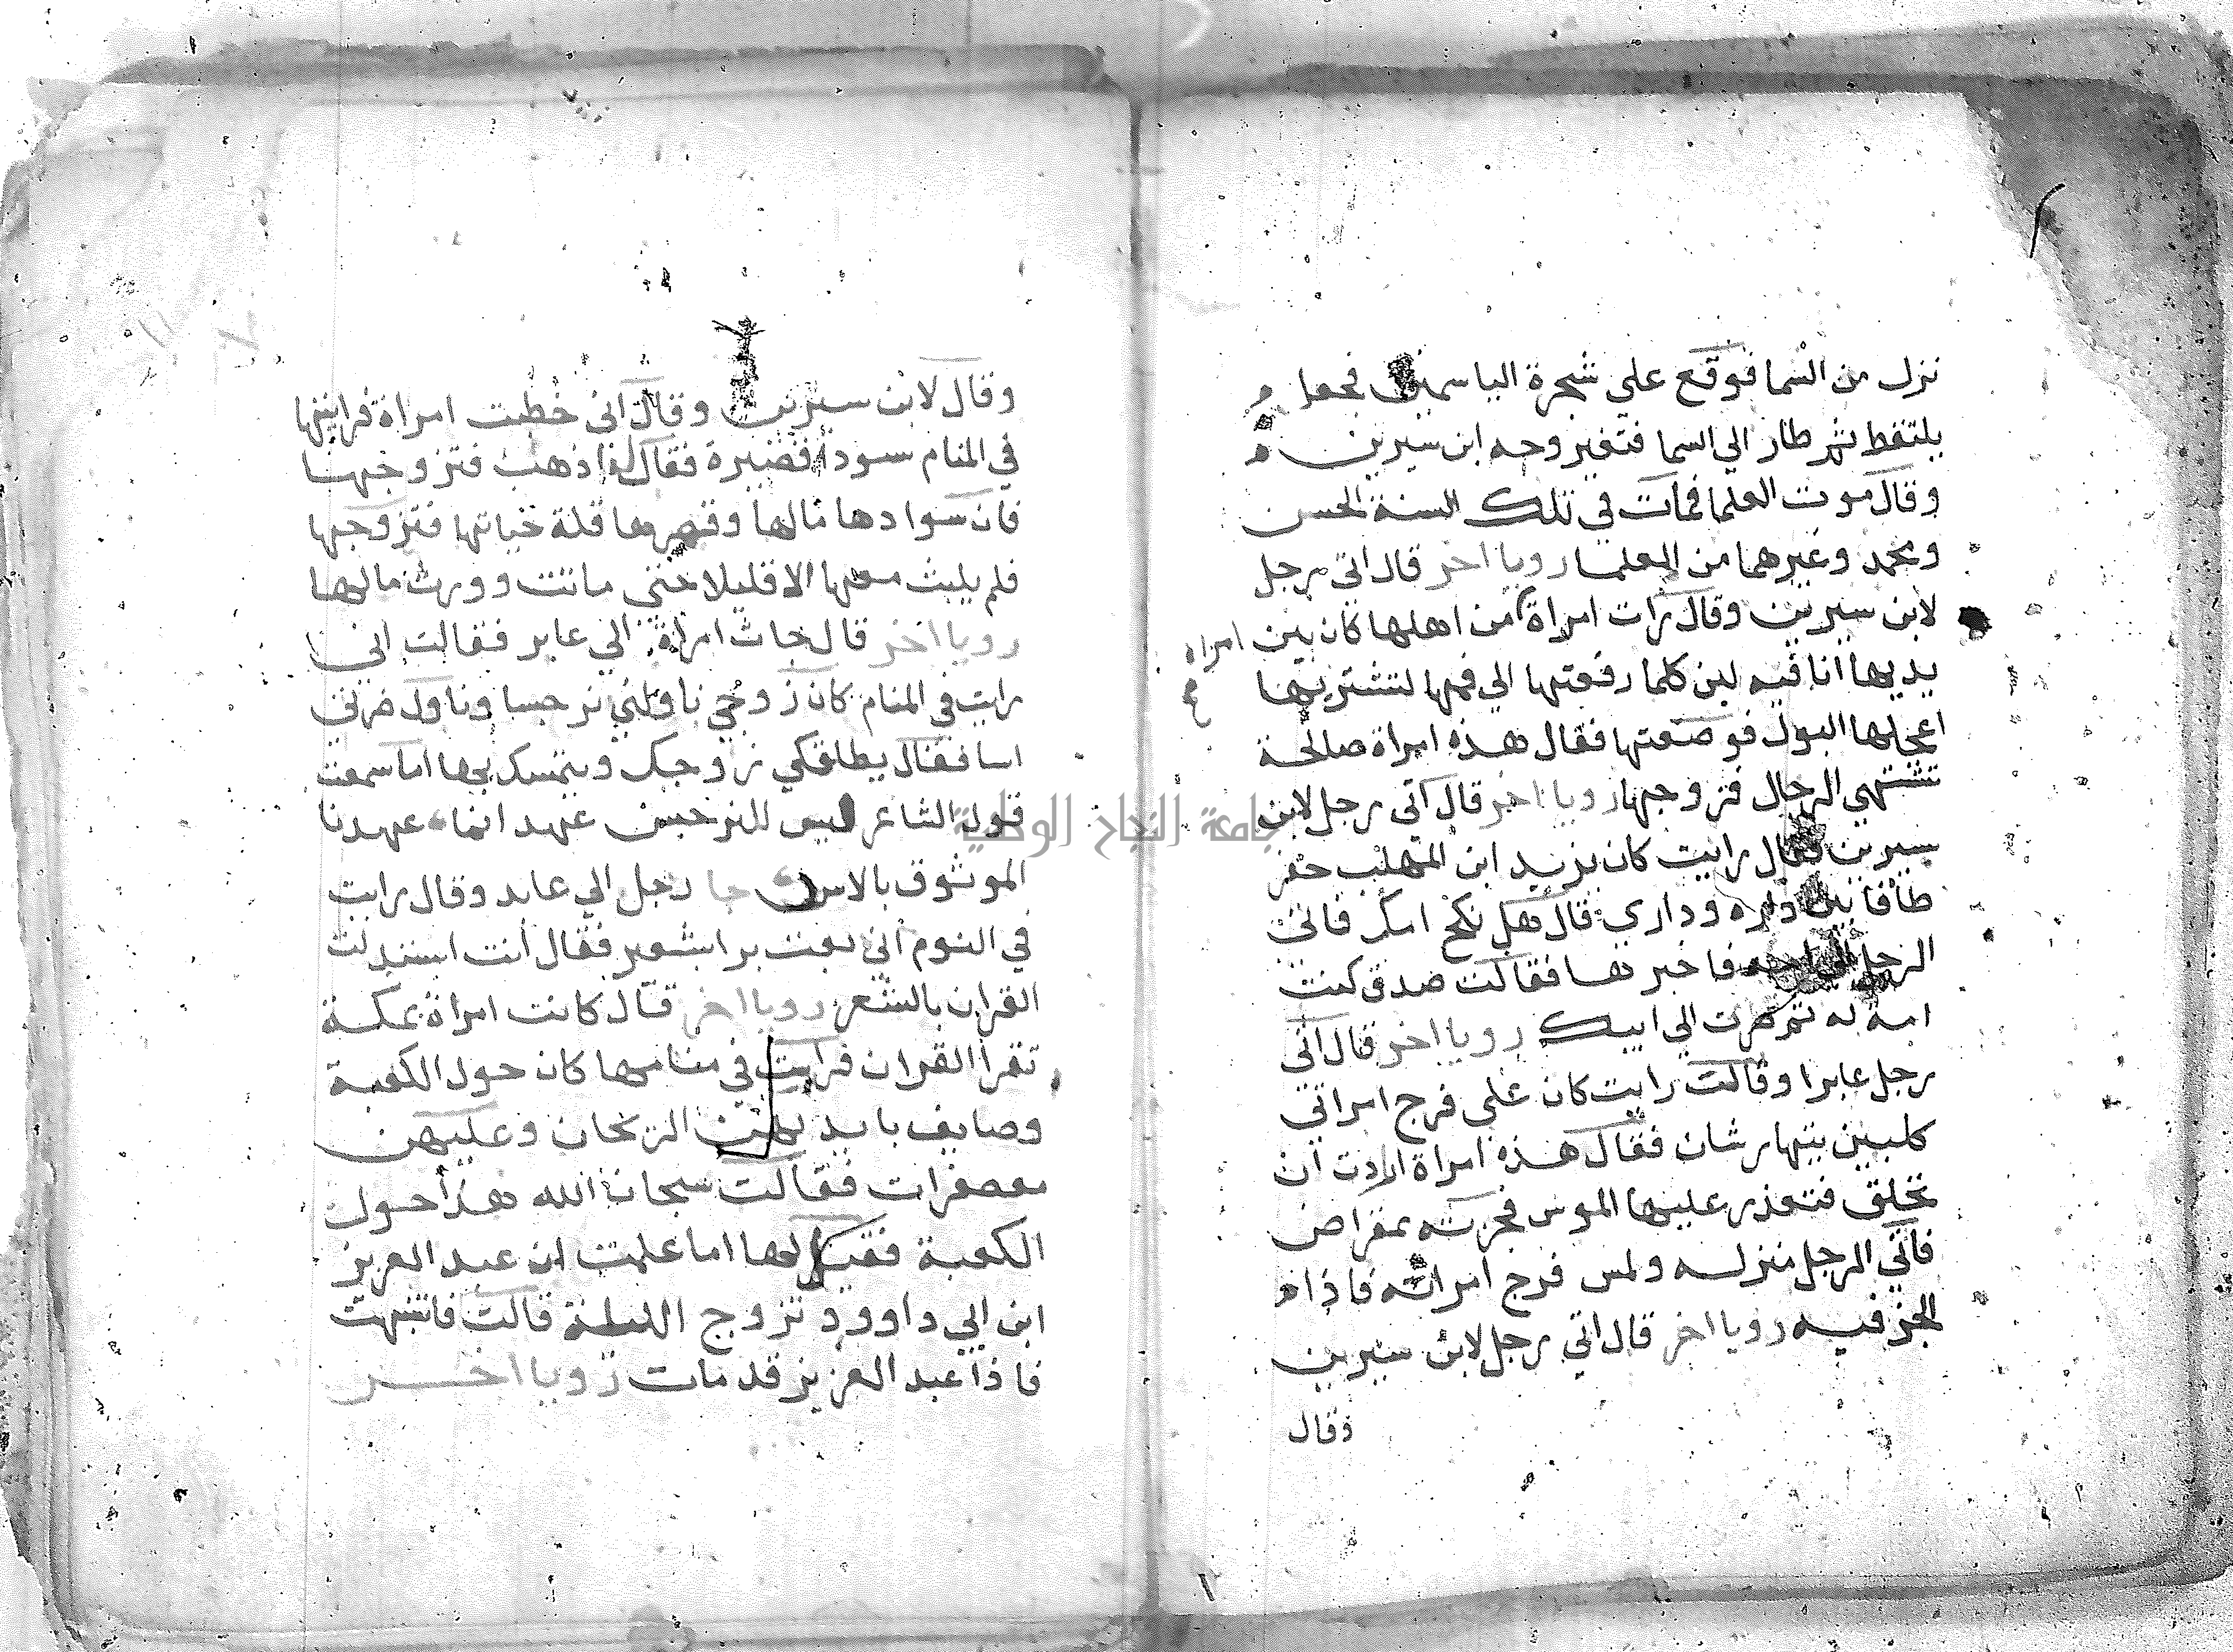 نزل من السما فوقع علي شجرة الياسمين فجعل
يلتقط ثم طار الي السما فتغير وجه ابن سيرين
وقال موت العلما فمات في تلك السنة الحسن
ومحمد وغيرهما من العلما رويا اخر قال اتي رجل
لابن سيرين وقال رات امراة من اهلها كان بين
امراه
يديها انا فيه لبن كلما رفعتها الي فمها لتشتربها
اعجلها البول فوضعتها فقال هذه امراة صالحة
تشتهي الرجال فتزوجها رويا اخر قال اتي رجل لابن
سيرين فقال رايت كان يزيد ابن المهلب حفر
طاقا بين داره وداري قال هل نكح امك فاتي
الرجل الي امه فاخبرها فقالت صدق كنت
امة له ثم صرت الي ابيك رويا اخر قال اتي
رجل عابرا وقالت رايت كان علي فرج امراتي
كلبين يتهارشان فقال هذه امراة ارادت ان
تحلق فتعذر عليها الموس فجزته بمقراض
فاتي الرجل منزله ولمس فرج امراته فاذا
الجز فيه رويا اخر قال اتي رجل لابن سيرين
وقال
وقال لابن سيرين وقال اني خطبت امراة فرايتها
في المنام سودا قصيرة فقال اذهب فتزوجها
فان سوادها مالها وقصرها قلة حياتها فتزوجها
فلم يلبث معها الا قليلا حتي ماتت وورث مالها
رويا اخر قال جات امراة الي عابر فقالت اني
رايت في المنام كان زوجي ناولني نرجسا وناول ضرتي
اسا فقال يطلقكي زوجك ويتمسك بها اما سمعت
قول الشاعر ليس للنرجس عهد انما عهدنا
الموثوق بالاس جا رجل الي عابد وقال رايت
في النوم اني بعت برا بشعير فقال انت استبدلت
القران بالشعر رويا اخر قال كانت امراة بمكة
تقرا القران فرايت في منامها كان حول الكعبة
وصايف بايديهن الريحان وعليهن
معصفرات فقالت سبحان الله هذا حول
الكعبة فقيل لها اما علمت ان عبد العزيز
ابن ابي داوود تزوج الليلة قالت فانتبهت
فاذا عبد العزيز قد مات رويا اخر
جامعة النجاح الوطنية